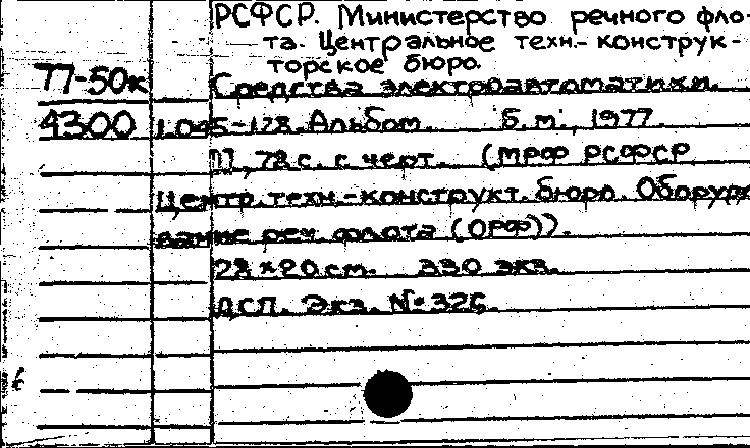 РСФСР. Министерство речного фло-
та. Центральное техн.- конструк-
торское бюро.
77-50к
Средства электроавтоматики.
4300
1.045-128. Альбом. Б.м., 1977.
II, 78 с. с черт. (МРФ РСФСР
Центр. техн.-конструкт. бюро. Оборудо
вание реч. флота (ОРФ)).
28×20 см. 330 экз.
ДСП. Экз. №